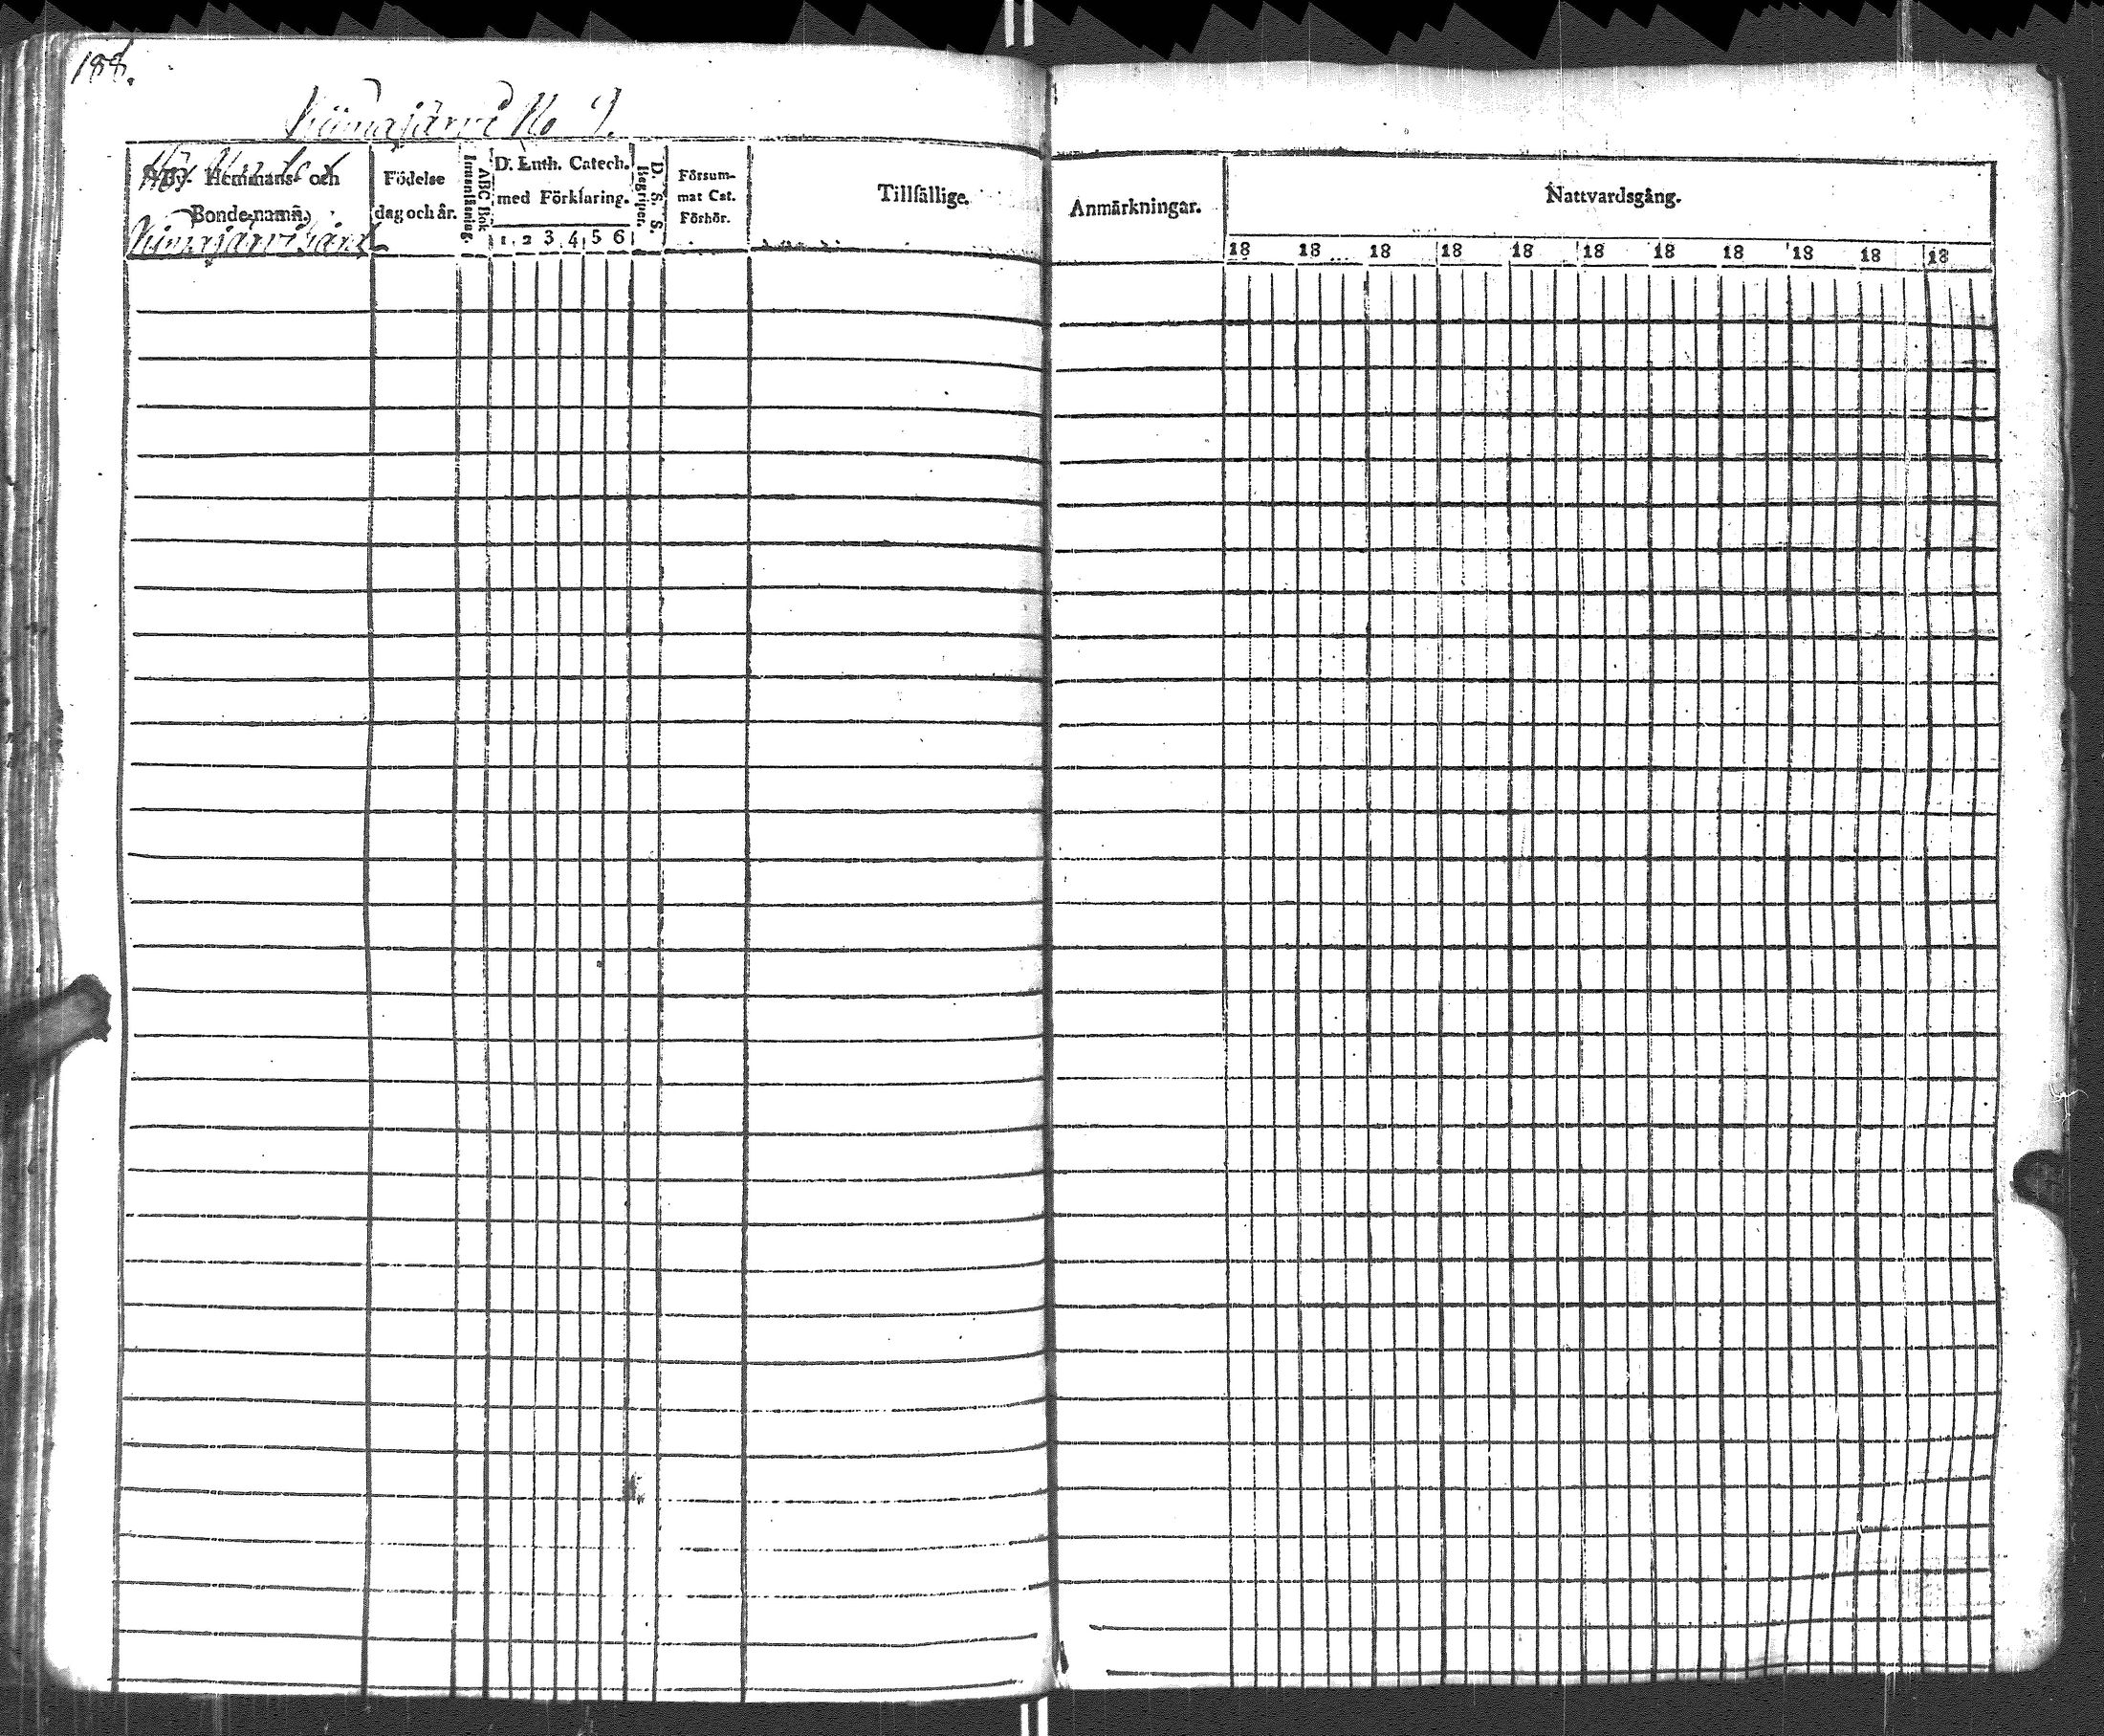 188.
Kiimajärvi No 9.
By. Hemmans- och
Bonde-namñ.
Födelse
dag och år.
Innanläsning.
ABC Bok
D. Luth. Catech.
med Förklaring.
1 2 3 4 5 6
D. S. S.
Begriper.
Försum-
mat Cat.
Förhör.
Tillfällige.
Anmärkningar.
Nattvardsgång.
18 18 18 18 18 18 18 18 18 18 18